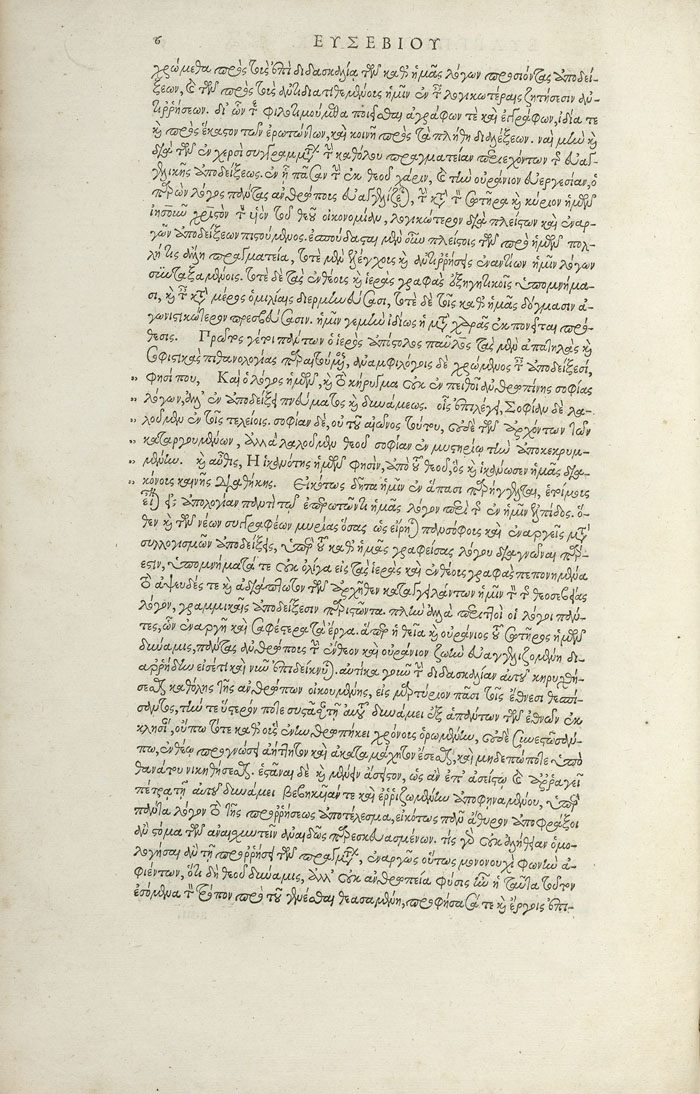 6 ΕΥΣΕΒΙΟΥ
χρώμεθα πρὸς τοὺς ἐπὶ διδασκαλία τῶν καθ' ἡμᾶς λόγων προσιόντας ἀποδεί-
ξεων, καὶ τῶν πρὸς τοὺς ἀντιδιατιθεμένους ἡμῖν ἐν ταῖς λογικωτέραις ζητήσεσιν ἀν-
τιρρήσεων. δι' ὧν φιλοτιμούμεθα ποιεῖσθαι ἀγράφων τε καὶ ἐγγράφων, ἰδία τε
καὶ πρὸς ἕκαστον τῶν ἐρωτώντων, καὶ κοινῆ πρὸς τὰ πλήθη διαλέξεων. ναὶ μὴν καὶ
διὰ τῶν ἐν χερσὶ συγγραμμάτων τὴν καθόλου πραγματείαν περιεχόντων τῆς εὐαγ-
γελικῆς ἀποδείξεως. ἐν ᾗ πᾶσαν τὴν ἐκ θεοῦ χάριν, καὶ τὴν οὐράνιον εὐεργεσίαν, ὁ
παρὼν λόγος πάντας ἀνθρώποις εὐαγγελίζεται, τὴν κατὰ τὸν σωτῆρα καὶ κύριον ἡμῶν
ἰησοῦν χριστὸν τὸν υἱὸν τοῦ θεοῦ οἰκονομίαν, λογικώτερον διὰ πλείστων καὶ ἐναρ-
γῶν ἀποδείξεων πιστούμενος. ἐσπούδασται μὲν οὖν πλείστοις τῶν πρὸ ἡμῶν πολ-
λή τις ἄλλη πραγματεία, τοτὲ μὲν ἐλέγχοις καὶ ἀντιρρήσεις ἐναντίων ἡμῖν λόγων
συνταξαμένοις. τοτὲ δὲ τὰς ἐνθέους καὶ ἱερὰς γραφὰς ἐξηγητικοῖς ὑπομνήμα-
σι, καὶ ταῖς κατὰ μέρος ὁμιλίαις διερμηνεύσασι, τοτὲ δὲ τοῖς καθ' ἡμᾶς δόγμασιν ἀ-
γωνιστικώτερον πρεσβεύσασιν. ἡμῖν γε μὴν ἰδίως ἡ μετὰ χεῖρας ἐκπονεῖται πρό-
θεσις. Πρῶτος γέ τοι πάντων ὁ ἱερὸς ἀπόστολος παῦλος τὰς μὲν ἀπατηλὰς καὶ
σοφιστικὰς πιθανολογίας παραιτούμενος, ἀναμφιλόγοις δὲ χρώμενος ταῖς ἀποδείξεσι,
„ φησί που, Καὶ ὁ λόγος ἡμῶν, καὶ τὸ κήρυγμα οὐκ ἐν πειθοῖ ἀνθρωπίνης σοφίας
„ λόγων, ἀλλ' ἐν ἀποδείξει πνεύματος καὶ δυνάμεως. οἷς ἐπιλέγει, Σοφίαν δὲ λα-
„ λοῦμεν ἐν τοῖς τελείοις. σοφίαν δὲ, οὐ τοῦ αἰῶνος τούτου, οὐδὲ τῶν ἀρχόντων τῶν
„ καταργουμένων, ἀλλὰ λαλοῦμεν θεοῦ σοφίαν ἐν μυστηρίῳ τὴν ἀποκεκρυμ-
„ μένην. καὶ αὖθις, Ἡ ἱκανότης ἡμῶν φησὶν, ἀπὸ τοῦ θεοῦ, ὃς καὶ ἱκάνωσεν ἡμᾶς δια-
„ κόνους καινῆς διαθήκης. Εἰκότως δῆτα ἡμῖν ἐν ἅπασι παρήγγελται, ἑτοίμοις
εἶναι πρὸς ἀπολογίαν παντὶ τῷ ἐπερωτῶντι ἡμᾶς λόγον περὶ τῆς ἐν ἡμῖν ἐλπίδος. ὅ-
θεν καὶ τῶν νέων συγγραφέων μυρίας ὅσας ὡς εἴρηται πανσόφους καὶ ἐναργεῖς μετὰ
συλλογισμῶν ἀποδείξεις, ὑπὲρ τοῦ καθ' ἡμᾶς γραφείσας λόγου διαγνῶναι πάρ-
εστιν, ὑπομνήματά τε οὐκ ὀλίγα εἰς τὰς ἱερὰς καὶ ἐνθέους γραφὰς πεπονημένα
τὸ ἀψευδές τε καὶ ἀδιάπτωτον τῶν ἀρχῆθεν καταγγειλάντων ἡμῖν τὸν τῆς θεοσεβείας
λόγον, γραμμικαῖς ἀποδείξεσιν παριστῶντα. πλὴν ἀλλὰ περιττοὶ οἱ λόγοι πάν-
τες, ὧν ἐναργῆ καὶ σαφέστερα τὰ ἔργα. ἅπερ ἡ θεία καὶ οὐράνιος τοῦ σωτῆρος ἡμῶν
δύναμις, πάντας ἀνθρώποις τὴν ἔνθεον καὶ οὐράνιον ζωὴν εὐαγγελιζομένη δι-
αρρήδην εἰσέτι καὶ νῦν ἐπιδείκνυται. αὐτίκα γοῦν τὴν διδασκαλίαν αὐτοῦ κηρυχθή-
σεσθαι καθόλης τῆς ἀνθρώπων οἰκουμένης, εἰς μαρτύριον πᾶσι τοῖς ἔθνεσι θεσπί-
σαντος, τήν τε ὕστερόν ποτε συστᾶσαν τῇ αὐτοῦ δυνάμει ἐξ ἁπάντων τῶν ἐθνῶν ἐκ
κλησίαν, οὔπω τότε καθ' οὓς ἐνηνθρωπήκει χρόνους ὁρωμένην, οὐδὲ συνεστῶσάν
πω, ἐνθέῳ προγνώσει ἀήττητον καὶ ἀκαταμάχητον ἔσεσθαι, καὶ μηδεπώποτε ὑπὸ
θανάτου νικηθήσεσθαι. ἑστάναι δὲ καὶ μένειν ἄσειστον, ὡς ἂν ἐπ' ἀσείστῳ καὶ ἀρραγεῖ
πέτρα τῇ αὐτοῦ δυνάμει βεβηκυῖάν τε καὶ ἐρριζωμένην ἀποφηναμένου, ὑπὲρ
πάντα λόγον τὸ τῆς προρρήσεως ἀποτέλεσμα, εἰκότως πᾶν ἄθυρον ἀποφράξοι
ἂν στόμα τῶν ἀναισχυντεῖν ἀναιδῶς παρεσκευασμένων. τίς γὰρ οὐκ ἀληθῆ ἂν ὁμο-
λογήσαι ἂν τὴν προρρήσιν τῶν πραγμάτων, ἐναργῶς οὕτως μονονουχὶ φωνὴν ἀ-
φιέντων, ὅτι δὴ θεοῦ δύναμις, ἀλλ' οὐκ ἀνθρωπεία φύσις ἦν ἡ ταῦτα τοῦτον
ἐσόμενα τὸν τρόπον πρὸ τοῦ γενέσθαι θεασαμένη, προφήσασά τε καὶ ἔργοις ἐπι-